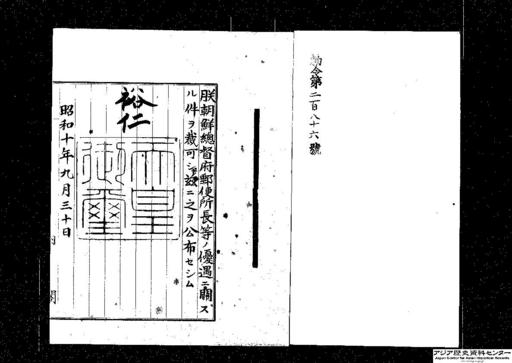 勅令第二百八十六號
朕朝鮮總督府郵便所長等ノ優遇ニ關ス
ル件ヲ裁可シ茲ニ之ヲ公布セシム
裕仁
天皇
御璽
昭和十年九月三十日
内閣
アジア歴史資料センター
Japan Center for Asian Historical Records